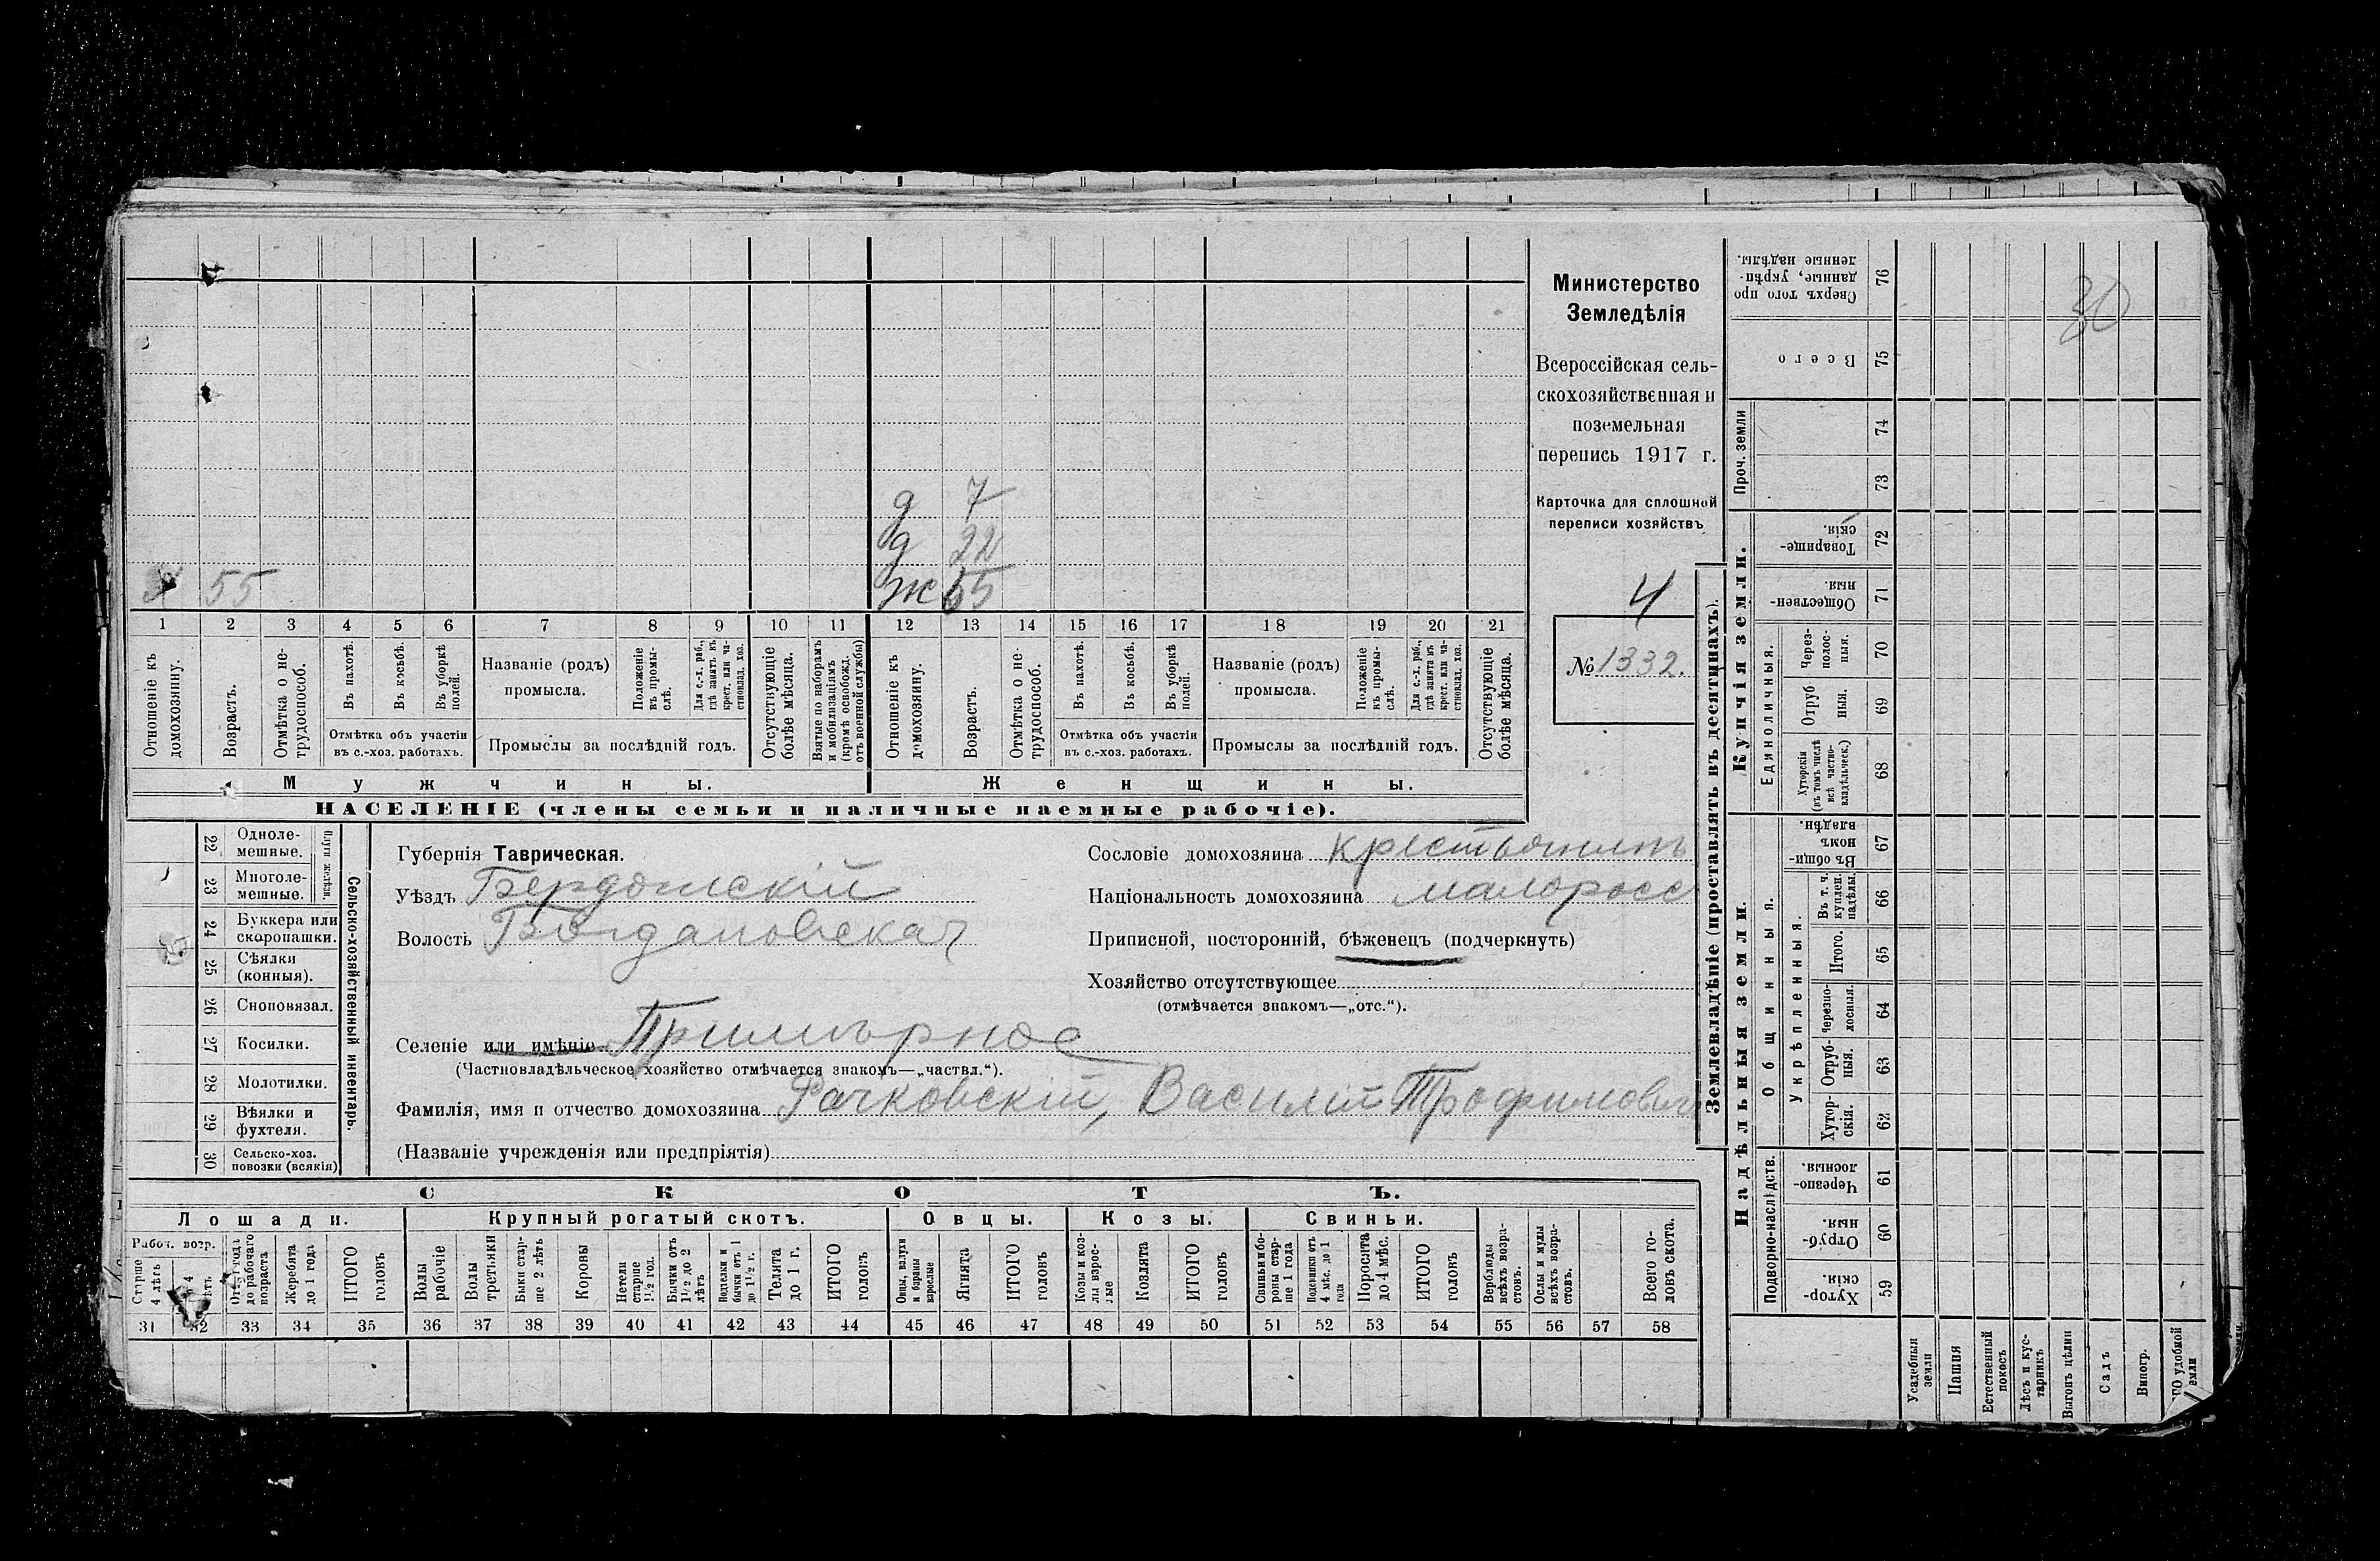 Министерство
Земледѣлія
Всероссійская сель-
скохозяйственная и
поземельная
перепись 1917 г.
Карточка для сплошной
переписи хозяйствъ
4
№ 1332.
30
д 7
д 22
ж 55
55
1 2 3 4 5 6 7 8 9 10 11 12 13 14 15 16 17 18 19 20 21
Отношеніе къ домохозяину.
Возрастъ.
Отмѣтка о не-трудоспособ.
Въ пахотѣ.
Въ косьбѣ.
Въ уборкѣ полей.
Отмѣтка объ участіи
въ с.-хоз. работахъ.
Названіе (родъ)
промысла.
Положеніе въ промы-слѣ.
Для с.-х. раб., гдѣ занятъ въ крест. или ча-стновлад. хоз.
Промыслы за послѣдній годъ.
Отсутствующіе болѣе мѣсяца.
Взятые по наборамъ и мобилизаціямъ (кромѣ освобожд. отъ военной службы)
Отношеніе къ домохозяину.
Возрастъ.
Отмѣтка о не-трудоспособ.
Въ пахотѣ.
Въ косьбѣ.
Въ уборкѣ полей.
Отмѣтка объ участіи
въ с.-хоз. работахъ.
Названіе (родъ)
промысла.
Положеніе въ промы-слѣ.
Для с.-х. раб., гдѣ занята въ крест. или ча-стновлад. хоз.
Промыслы за послѣдній годъ.
Отсутствующіе болѣе мѣсяца.
Мужчины.
Женщины.
НАСЕЛЕНІЕ (члены семьи и наличные наемные рабочіе).
22 Одноле-мешные.
23 Многоле-мешные.
Плуги желѣзн.
24 Буккера или скоропашки.
25 Сѣялки (конныя).
26 Сноповязал.
27 Косилки.
28 Молотилки.
29 Вѣялки и фухтеля.
30 Сельско-хоз. повозки (всякія)
Сельско-хозяйственный инвентарь.
Губернія Таврическая.
Уѣздъ Бердянскій
Волость Богдановская
Селеніе или имѣніе Примѣрное
(Частновладѣльческое хозяйство отмѣчается знакомъ—„частвл.“).
Фамилія, имя и отчество домохозяина Рачковскій, Василій Трофимович
(Названіе учрежденія или предпріятія)
Сословіе домохозяина крестьянинъ
Національность домохозяина малоросс
Приписной, посторонній, бѣженецъ (подчеркнуть)
Хозяйство отсутствующее
(отмѣчается знакомъ—„отс.“).
СКОТЪ.
Лошади.
Крупный рогатый скотъ.
Овцы.
Козы.
Свиньи.
Рабоч. возр.
Старше 4 лѣтъ
до рабочаго возраста
Жеребята до 1 года
ИТОГО головъ
Волы рабочіе
Волы третьяки
Быки стар-ше 2 лѣтъ
Коровы
Нетели старше 1½ год.
Бычки отъ 1½ до 2 лѣтъ
Подтелки и бычки отъ 1 до 1½ г.
Телята до 1 г.
ИТОГО головъ
Овцы, валухи и бараны взрослые
Ягнята
ИТОГО головъ
Козы и коз-лы взрос-лые
Козлята
ИТОГО головъ
Свиньи и бо-ровы стар-ше 1 года
Подсвинки отъ 4 мѣс. до 1 года
Поросята до 4 мѣс.
ИТОГО головъ
Верблюды всѣхъ возра-стовъ.
Ослы и мулы всѣхъ возра-стовъ.
Всего го-ловъ скота.
31 32 33 34 35 36 37 38 39 40 41 42 43 44 45 46 47 48 49 50 51 52 53 54 55 56 57 58
Землевладѣніе (проставлять въ десятинахъ).
Купчія земли.
Надѣльныя земли.
Сверхъ того про данные, укрѣп-ленные надѣлы. 76
Всего 75
Проч. земли
74
73
Товарище-скія. 72
Обществен-ныя. 71
Единоличныя.
Через-полос-ныя. 70
Отруб ныя. 69
Хуторскія (въ томъ числѣ всѣ частно-владѣльческ.) 68
Общинныя.
Въ общи-номъ владѣн. 67
Укрѣпленныя.
Въ т. ч. куплен. надѣлы. 66
Итого. 65
Черезпо-лосныя. 64
Отруб-ныя. 63
Хутор-скія. 62
Подворно-наслѣдств.
Черезпо-лосныя. 61
Отруб-ныя. 60
Хутор-скія. 59
Усадебныя земли
Пашня
Естественный покосъ
Лѣсъ и кус-тарникъ
Выгонъ цѣлин
Садъ
Виногр.
удобной